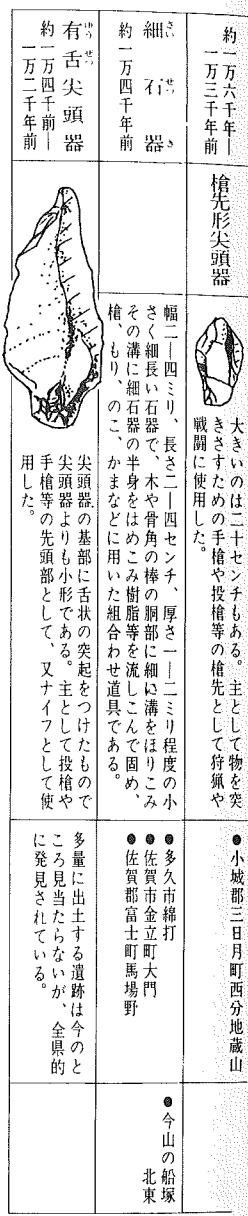 約一万六千年―
一万三千年前
槍先形尖頭器
大きいのは二十センチもある。主として物を突
きさすための手槍や投槍等の槍先として狩猟や
戦闘に使用した。
●小城郡三日月町西分地蔵山
さいせっき
細石器
約一万四千年前
幅二―四ミリ、長さ二―四センチ、厚さ一―二ミリ程度の小
さく細長い石器で、木や骨角の棒の胴部に細い溝をほりこみ
その溝に細石器の半身をはめこみ樹脂等を流しこんで固め、
槍、もり、のこ、かまなどに用いた組合わせ道具である。
●多久市綿打
●佐賀市金立町大門
●佐賀郡富士町馬場野
●今山の船塚
北東
ゆうぜつ
有舌尖頭器
約一万四千前―
一万二千年前
尖頭器の基部に舌状の突起をつけたもので
尖頭器よりも小形である。主として投槍や
手槍等の先頭部として、又ナイフとして使
用した。
多量に出土する遺跡は今のと
ころ見当たらないが、全県的
に発見されている。